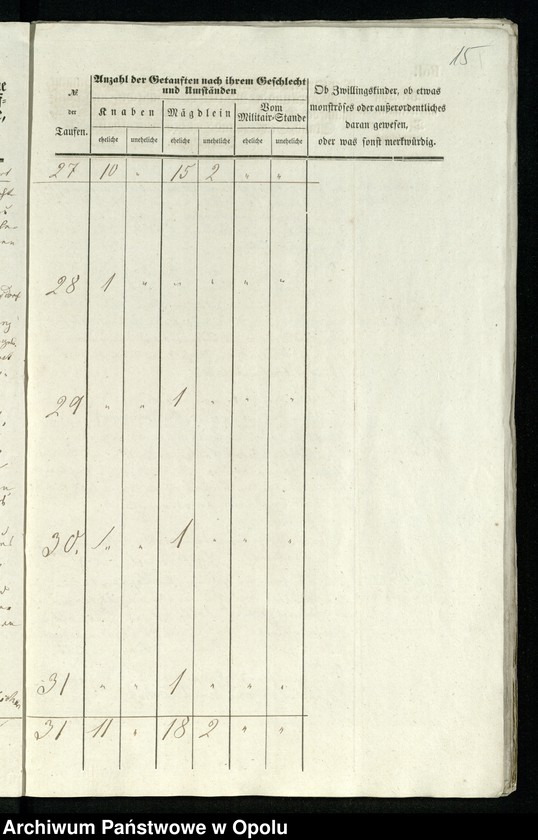 15
№ der Taufen.
Anzahl der Getauften nach ihrem Geschlecht
und Umständen
Knaben Mägdlein Vom Militair-Stande
eheliche uneheliche eheliche uneheliche eheliche uneheliche
Ob Zwillingskinder, ob etwas
monströses oder außerordentliches
daran gewesen,
oder was sonst merkwürdig.
27 10 " 15 2 " "
28 1 " " " " "
29 " " 1 " " "
30. " 1 " " "
31 " " 1 " " "
31 11 " 18 2 " "
Archiwum Państwowe w Opolu